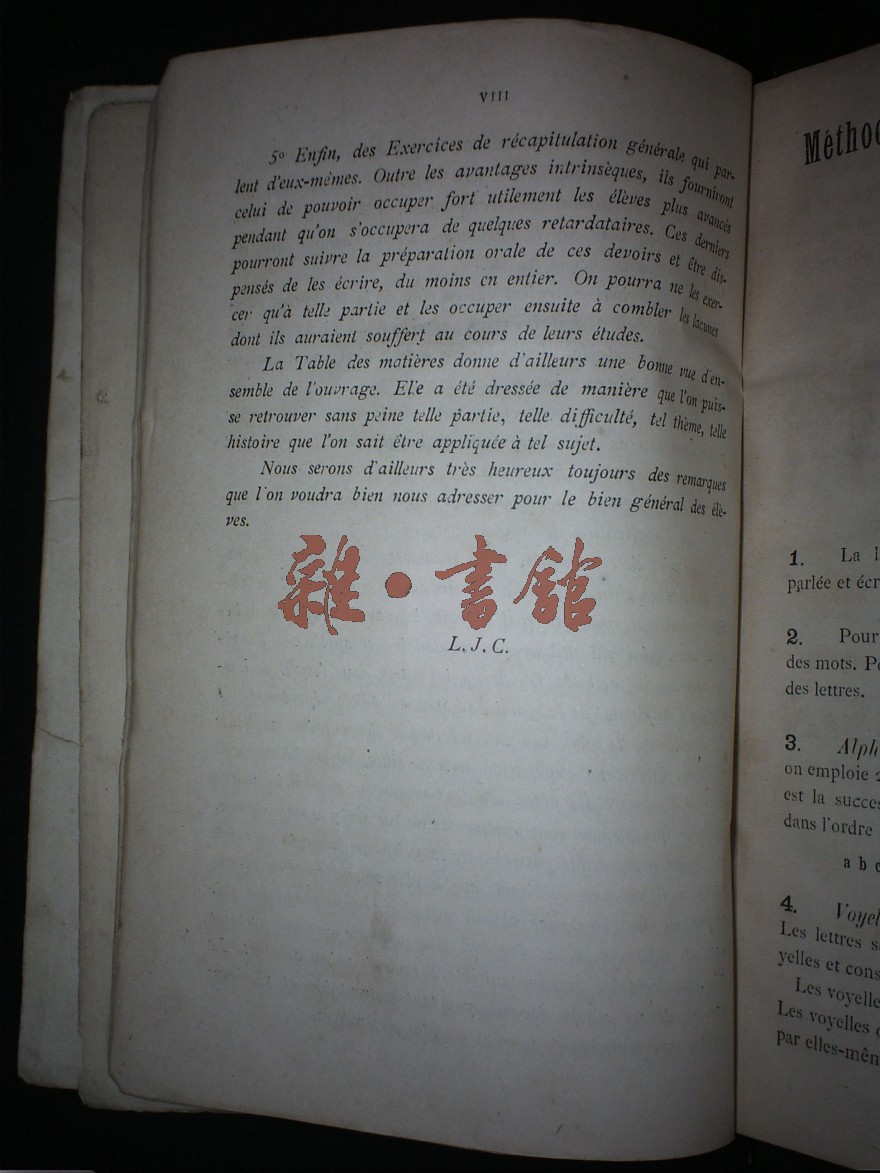 VIII
5º Enfin, des Exercices de récapitulation générale qui par-
lent d'eux-mêmes. Outre les avantages intrinsèques, ils fourniront
celui de pouvoir occuper fort utilement les élèves plus avancés
pendant qu'on s'occupera de quelques retardataires. Ces derniers
pourront suivre la préparation orale de ces devoirs et être dis-
pensés de les écrire, du moins en entier. On pourra ne les exer-
cer qu'à telle partie et les occuper ensuite à combler les lacunes
dont ils auraient souffert au cours de leurs études.
La Table des matières donne d'ailleurs une bonne vue d'en-
semble de l'ouvrage. Elle a été dressée de manière que l'on puis-
se retrouver sans peine telle partie, telle difficulté, tel thème, telle
histoire que l'on sait être appliquée à tel sujet.
Nous serons d'ailleurs très heureux toujours des remarques
que l'on voudra bien nous adresser pour le bien général des élè-
ves.
雜·書館
L. J. C.
Métho
1. La l
parlée et écri
2. Pour
des mots. Po
des lettres.
3. Alph
on emploie 2
est la succes
dans l'ordre
a b c
4. Voyel
Les lettres s
yelles et cons
Les voyelle
Les voyelles
par elles-mêm